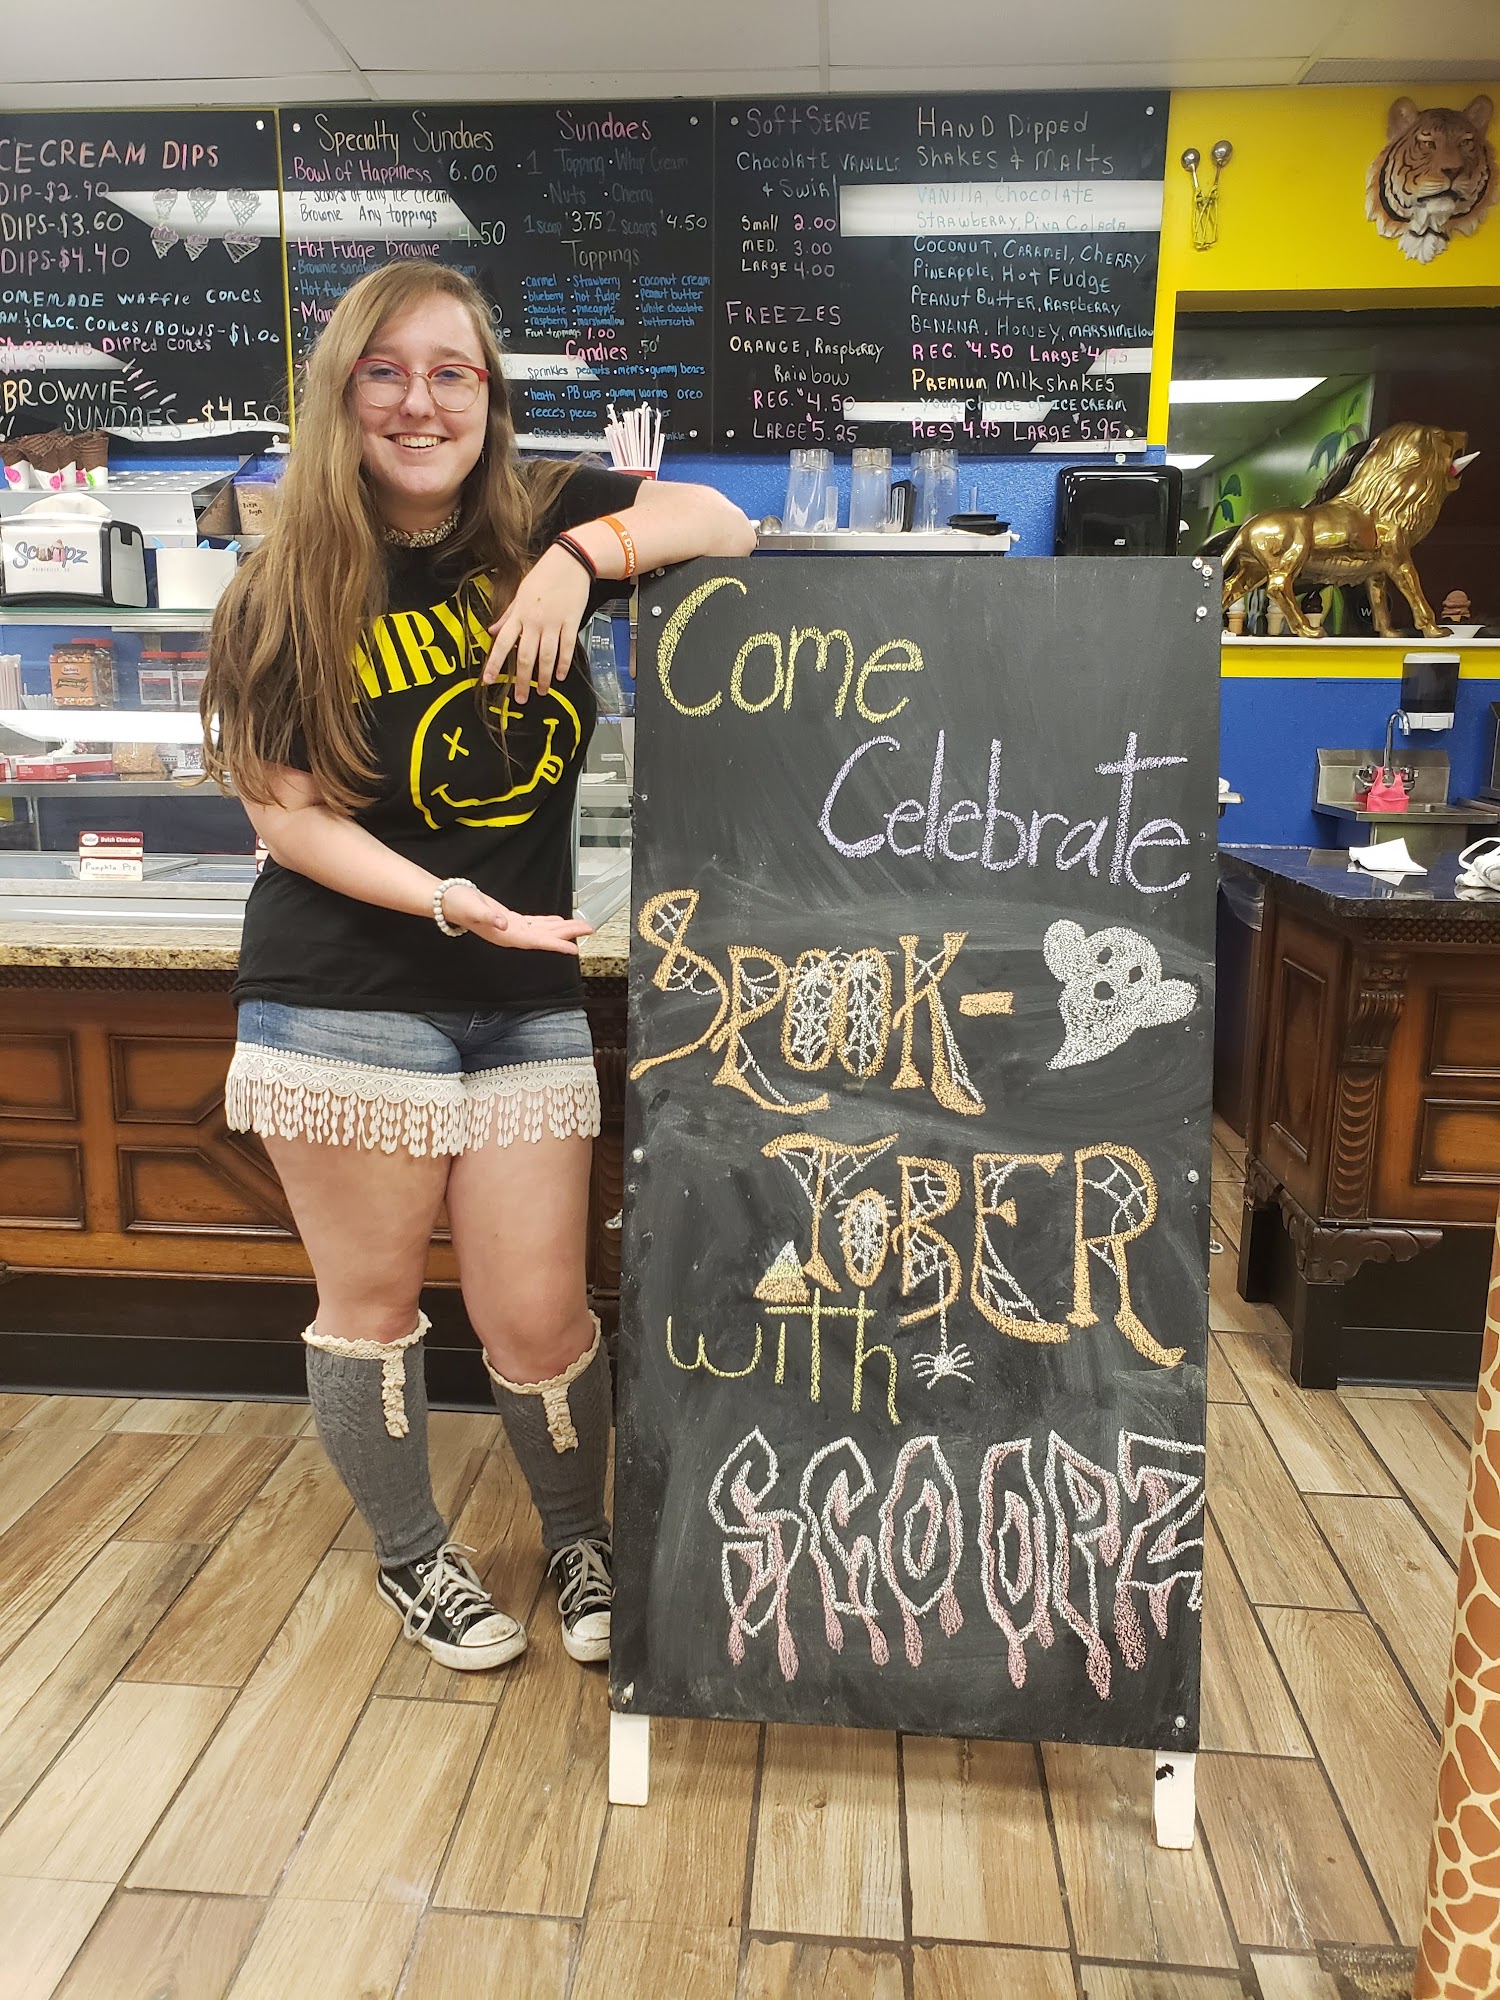 CECREAM DIPS
DIP-$2.90
DIPS-$3.60
DIPS-$4.40
OMEMADE WAFFLE CONES
& CHOC. CONES/BOWLS-$1.00
CHOCOLATE DIPPED CONES
$1.69
BROWNIE
SUNDAES-$4.50
Specialty Sundaes
Bowl of Happiness $6.00
2 scoops of any ice cream
Brownie Any toppings
$4.50
Hot Fudge Brownie
Sundaes
1 Topping • Whip Cream
• Nuts • Cherry
1 scoop $3.75 2 scoops $4.50
Toppings
• carmel • Strawberry • coconut cream
• blueberry • hot fudge • peanut butter
• chocolate • pineapple • white chocolate
• raspberry • marshmallow • butterscotch
Fruit toppings 1.00
Candies .50¢
Sprinkles peanuts • m&m's • gummy bears
• heath • PB cups • gummy worms oreo
• reese's pieces
SOFT SERVE
CHOCOLATE VANILLA
& SWIRL
Small 2.00
MED. 3.00
LARGE 4.00
FREEZES
ORANGE, RASPBERRY
RAINBOW
REG. $4.50
LARGE $5.25
HAND DIPPED
SHAKES & MALTS
VANILLA, CHOCOLATE
STRAWBERRY, PINA COLADA
COCONUT, CARAMEL, CHERRY
PINEAPPLE, HOT FUDGE
PEANUT BUTTER, RASPBERRY
BANANA, HONEY, MARSHMELLOW
REG. $4.50 LARGE $4.95
PREMIUM MILKSHAKES
YOUR CHOICE OF ICE CREAM
REG $4.95 LARGE $5.95
Scoopz
NIRVANA
Dutch Chocolate
Pumpkin Pie
Come
Celebrate
SPOOK-
TOBER
with
SCOOPZ